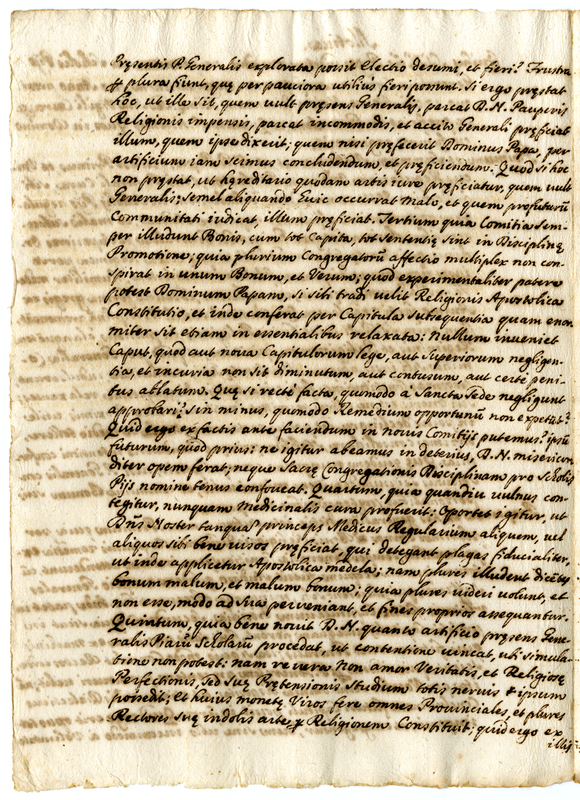 Pręsentis P. Generalis explorata possit electio desumi, et fieri? Frustra
plura fiunt, quę per pauciora utilius fieri possunt. Si ergo pręstat
hoc, ut ille sit, quem vult pręsens Generalis, parcat D. N. Pauperis
Religionis impensis, parcat incommodis, et accito Generali pręficiat
illum, quem ipse dixerit; quem nisi pręfecerit Dominus Papa, per
artificium iam scimus concludendum, et pręficiendum. Quod si hoc
non pręstat, ut hęreditario quodam artis iure pręficiatur, quem vult
Generalis; semel aliquando huic occurrat malo, et quem profuturũ
Communitati iudicat, illum pręficiat. Tertium quia Comitia Sem-
per illudunt Bonis, cum tot Capita, tot Sententię sint in Disciplinę
Promotione; quia plurium Congregatorũ affectio multiplex non con-
spirat in unum Bonum, et Verum; quod experimentaliter patere
potest Dominum Papam, si sibi tradi velit Religionis Apostolica
Constitutio, et inde conferat per Capitula Subsequentia quam enor-
miter sit etiam in essentialibus relaxata: Nullum inveniet
Caput, quod aut nova Capitulorum lege, aut Superiorum negligen-
tia, et incuria non sit diminutum, aut contusum, aut certè peni-
tus ablatum. Quę si rectè facta, quomodo a Sancta Sede negligunt
approbari? sin minus, quomodo Remedium opportunũ non expetũt?
Quid ergo ex factis ante faciendum in novis Comitijs putemus? ipsũ
futurum, quod prius: ne igitur abeamus in deterius, D. N. misericor-
diter opem ferat; neque Sacrę Congregationis Disciplinam pro Scholis
Pijs nomine tenus confoveat. Quartum, quia quandiu vulnus con-
tegitur, nunquam medicinalis cura profuerit: Oportet igitur, ut
Dñs Noster tanquã princeps Medicus Regularium aliquem, vel
aliquos sibi bene visos pręficiat, qui detegant plagas fiducialiter,
ut inde applicetur Apostolica medela; nam plures illudent dicẽtes
bonum malum, et malum bonum; quia plures videri volunt, et
non esse, modo ad Sua perveniant, et fines proprios assequantur.
Quintum, quia bene novit D. N. quanto artificio pręsens Gene-
ralis Piarũ Scholarũ procedat, ut contentione vincat, uti simula-
tione non potest: nam re vera Non amor Veritatis, et Religiosę
Perfectionis, sed Suę Pretensionis Studium totis nervis ipsum
possedit; Et huius monetę Viros fere omnes Provinciales, et plures
Rectores Suę indolis arte Religionem Constituit; quid ergo ex
illis